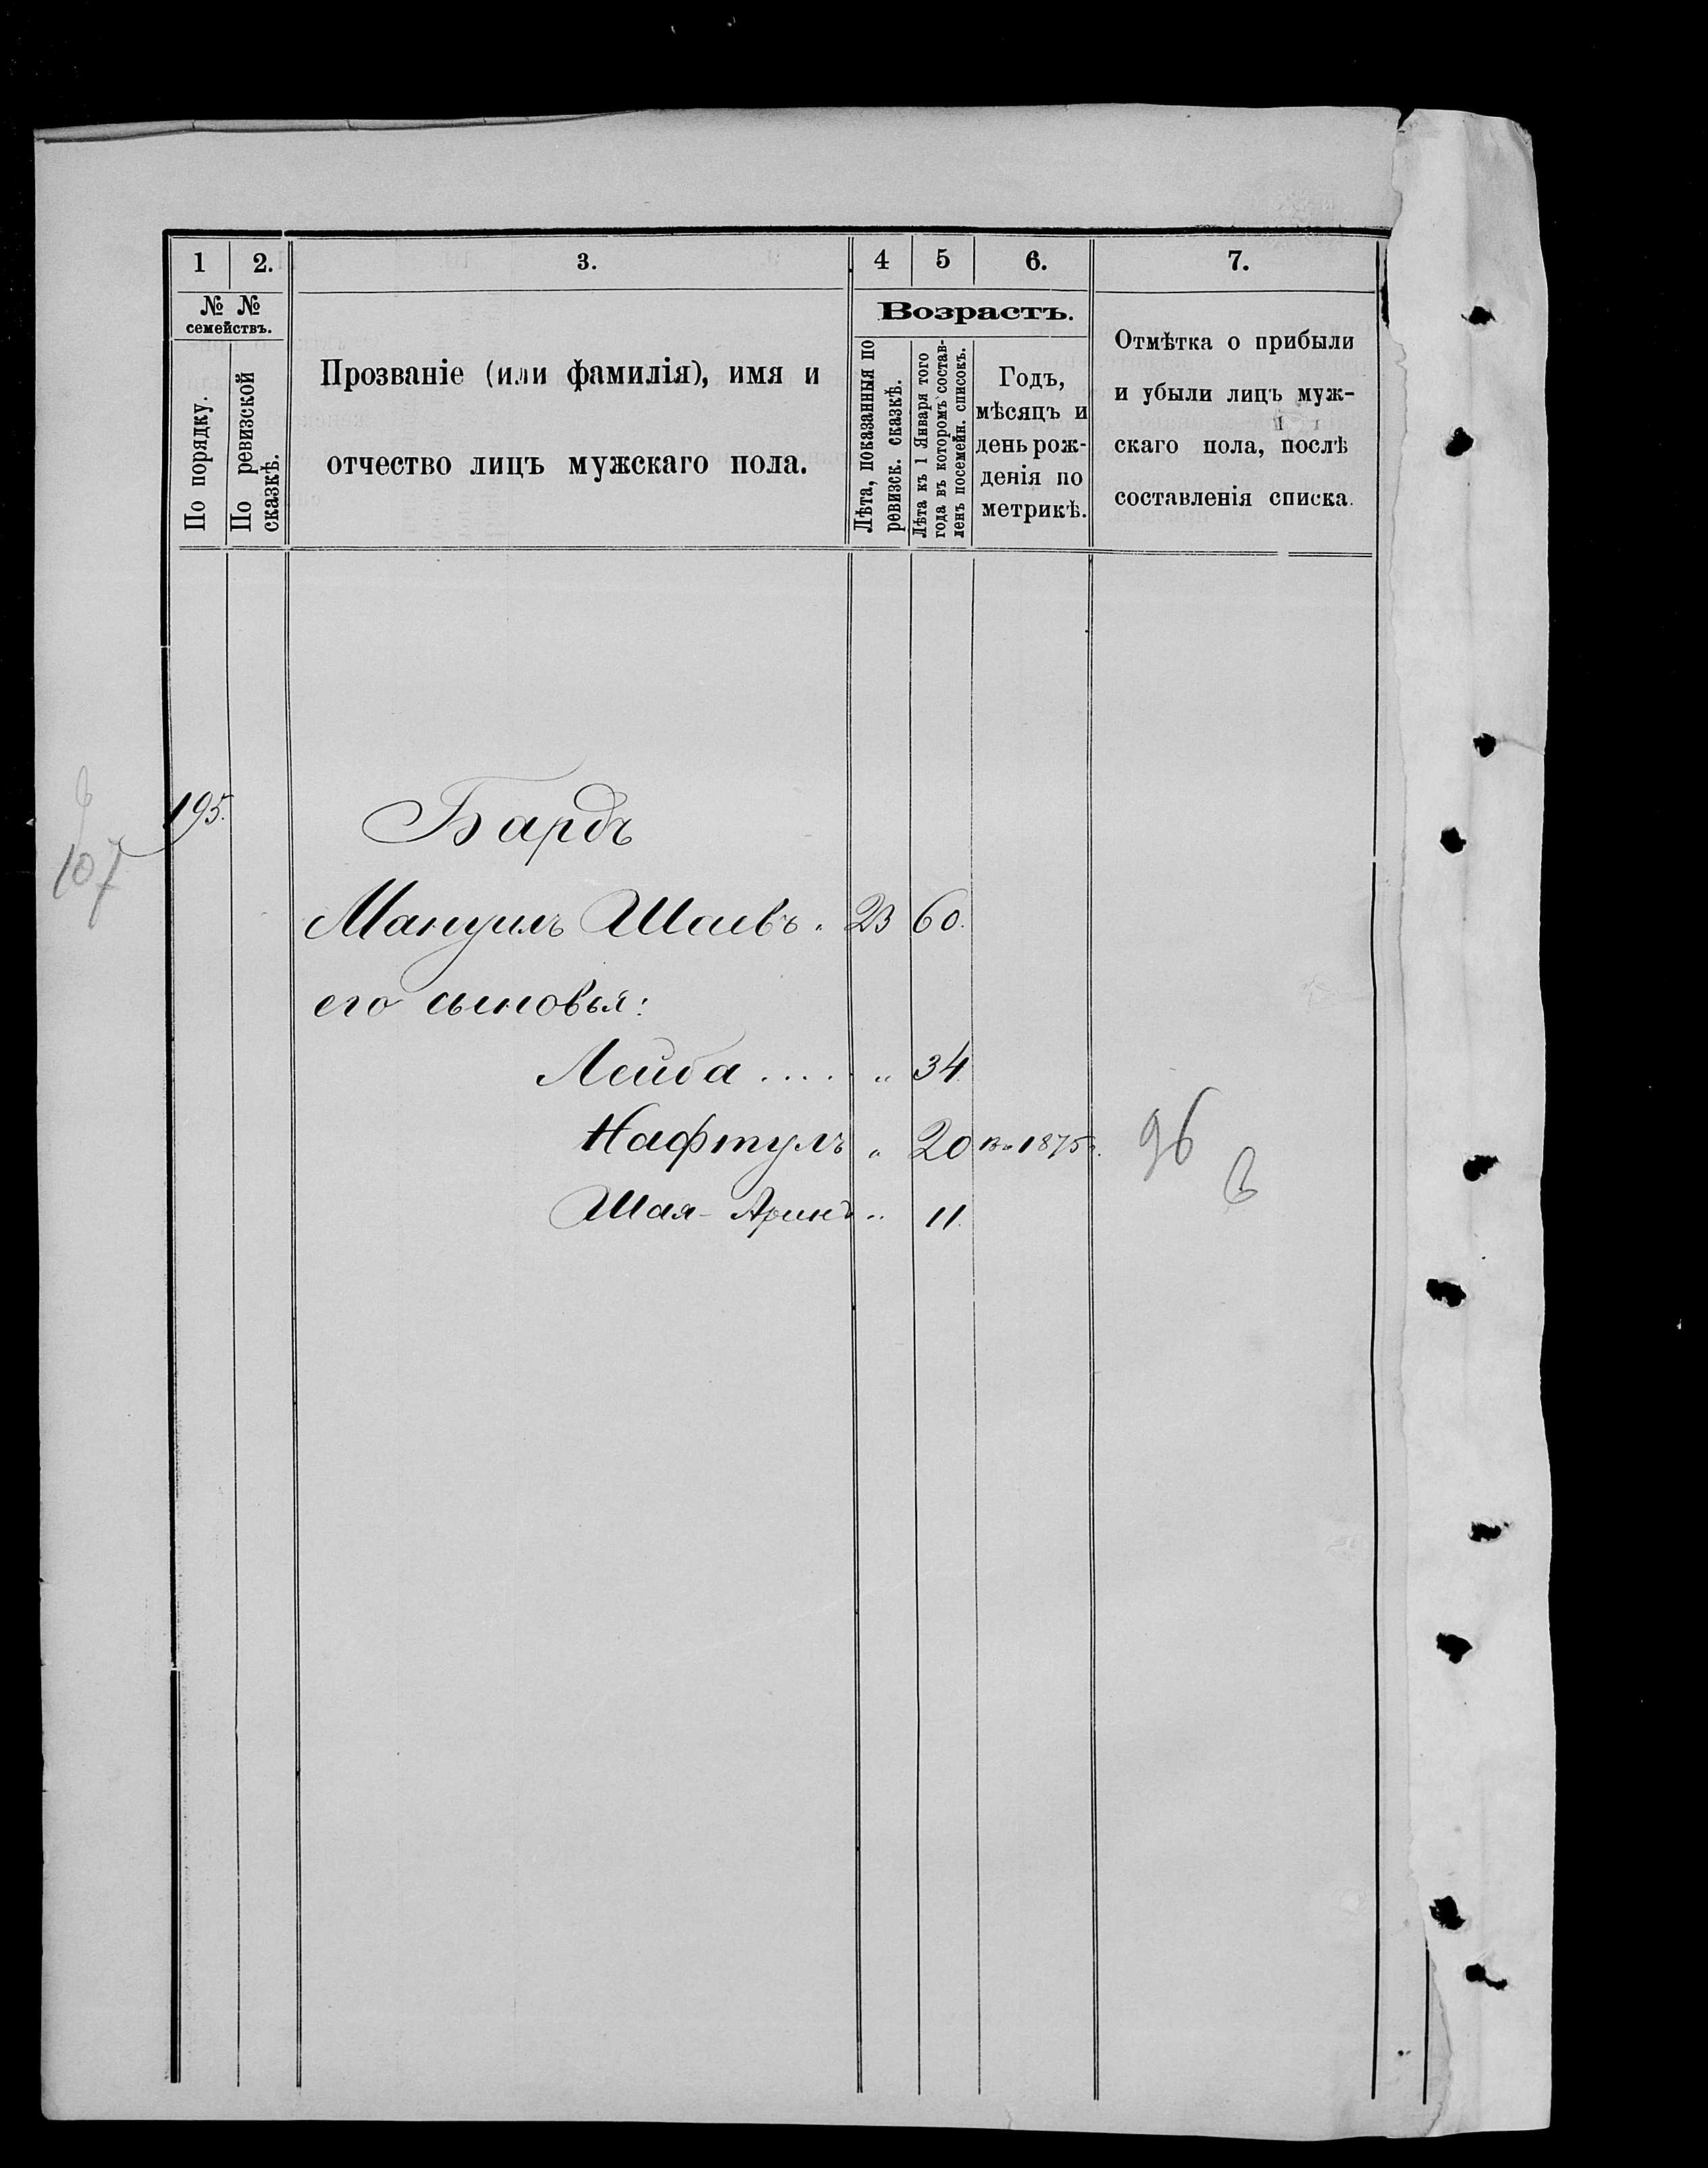 1 2. 3. 4 5 6. 7.
№ № семействъ.
По порядку.
По ревизской сказкѣ.
Прозваніе (или фамилія), имя и
отчество лицъ мужскаго пола.
Возрастъ.
Лѣта, показанныя по
ревизск. сказкѣ.
Лѣта къ 1 Января того
года въ которомъ состав-
ленъ посемейн. списокъ.
Годъ,
мѣсяцъ и
день рож-
денія по
метрикѣ.
Отмѣтка о прибыли
и убыли лицъ муж-
скаго пола, послѣ
составленія списка.
195. Бардъ
107
Мануилъ Шаевъ. 23 60.
его сыновья:
Лейба ..... " 34.
Нафтулъ " 20 1875 г. 96
Шая- " 11.